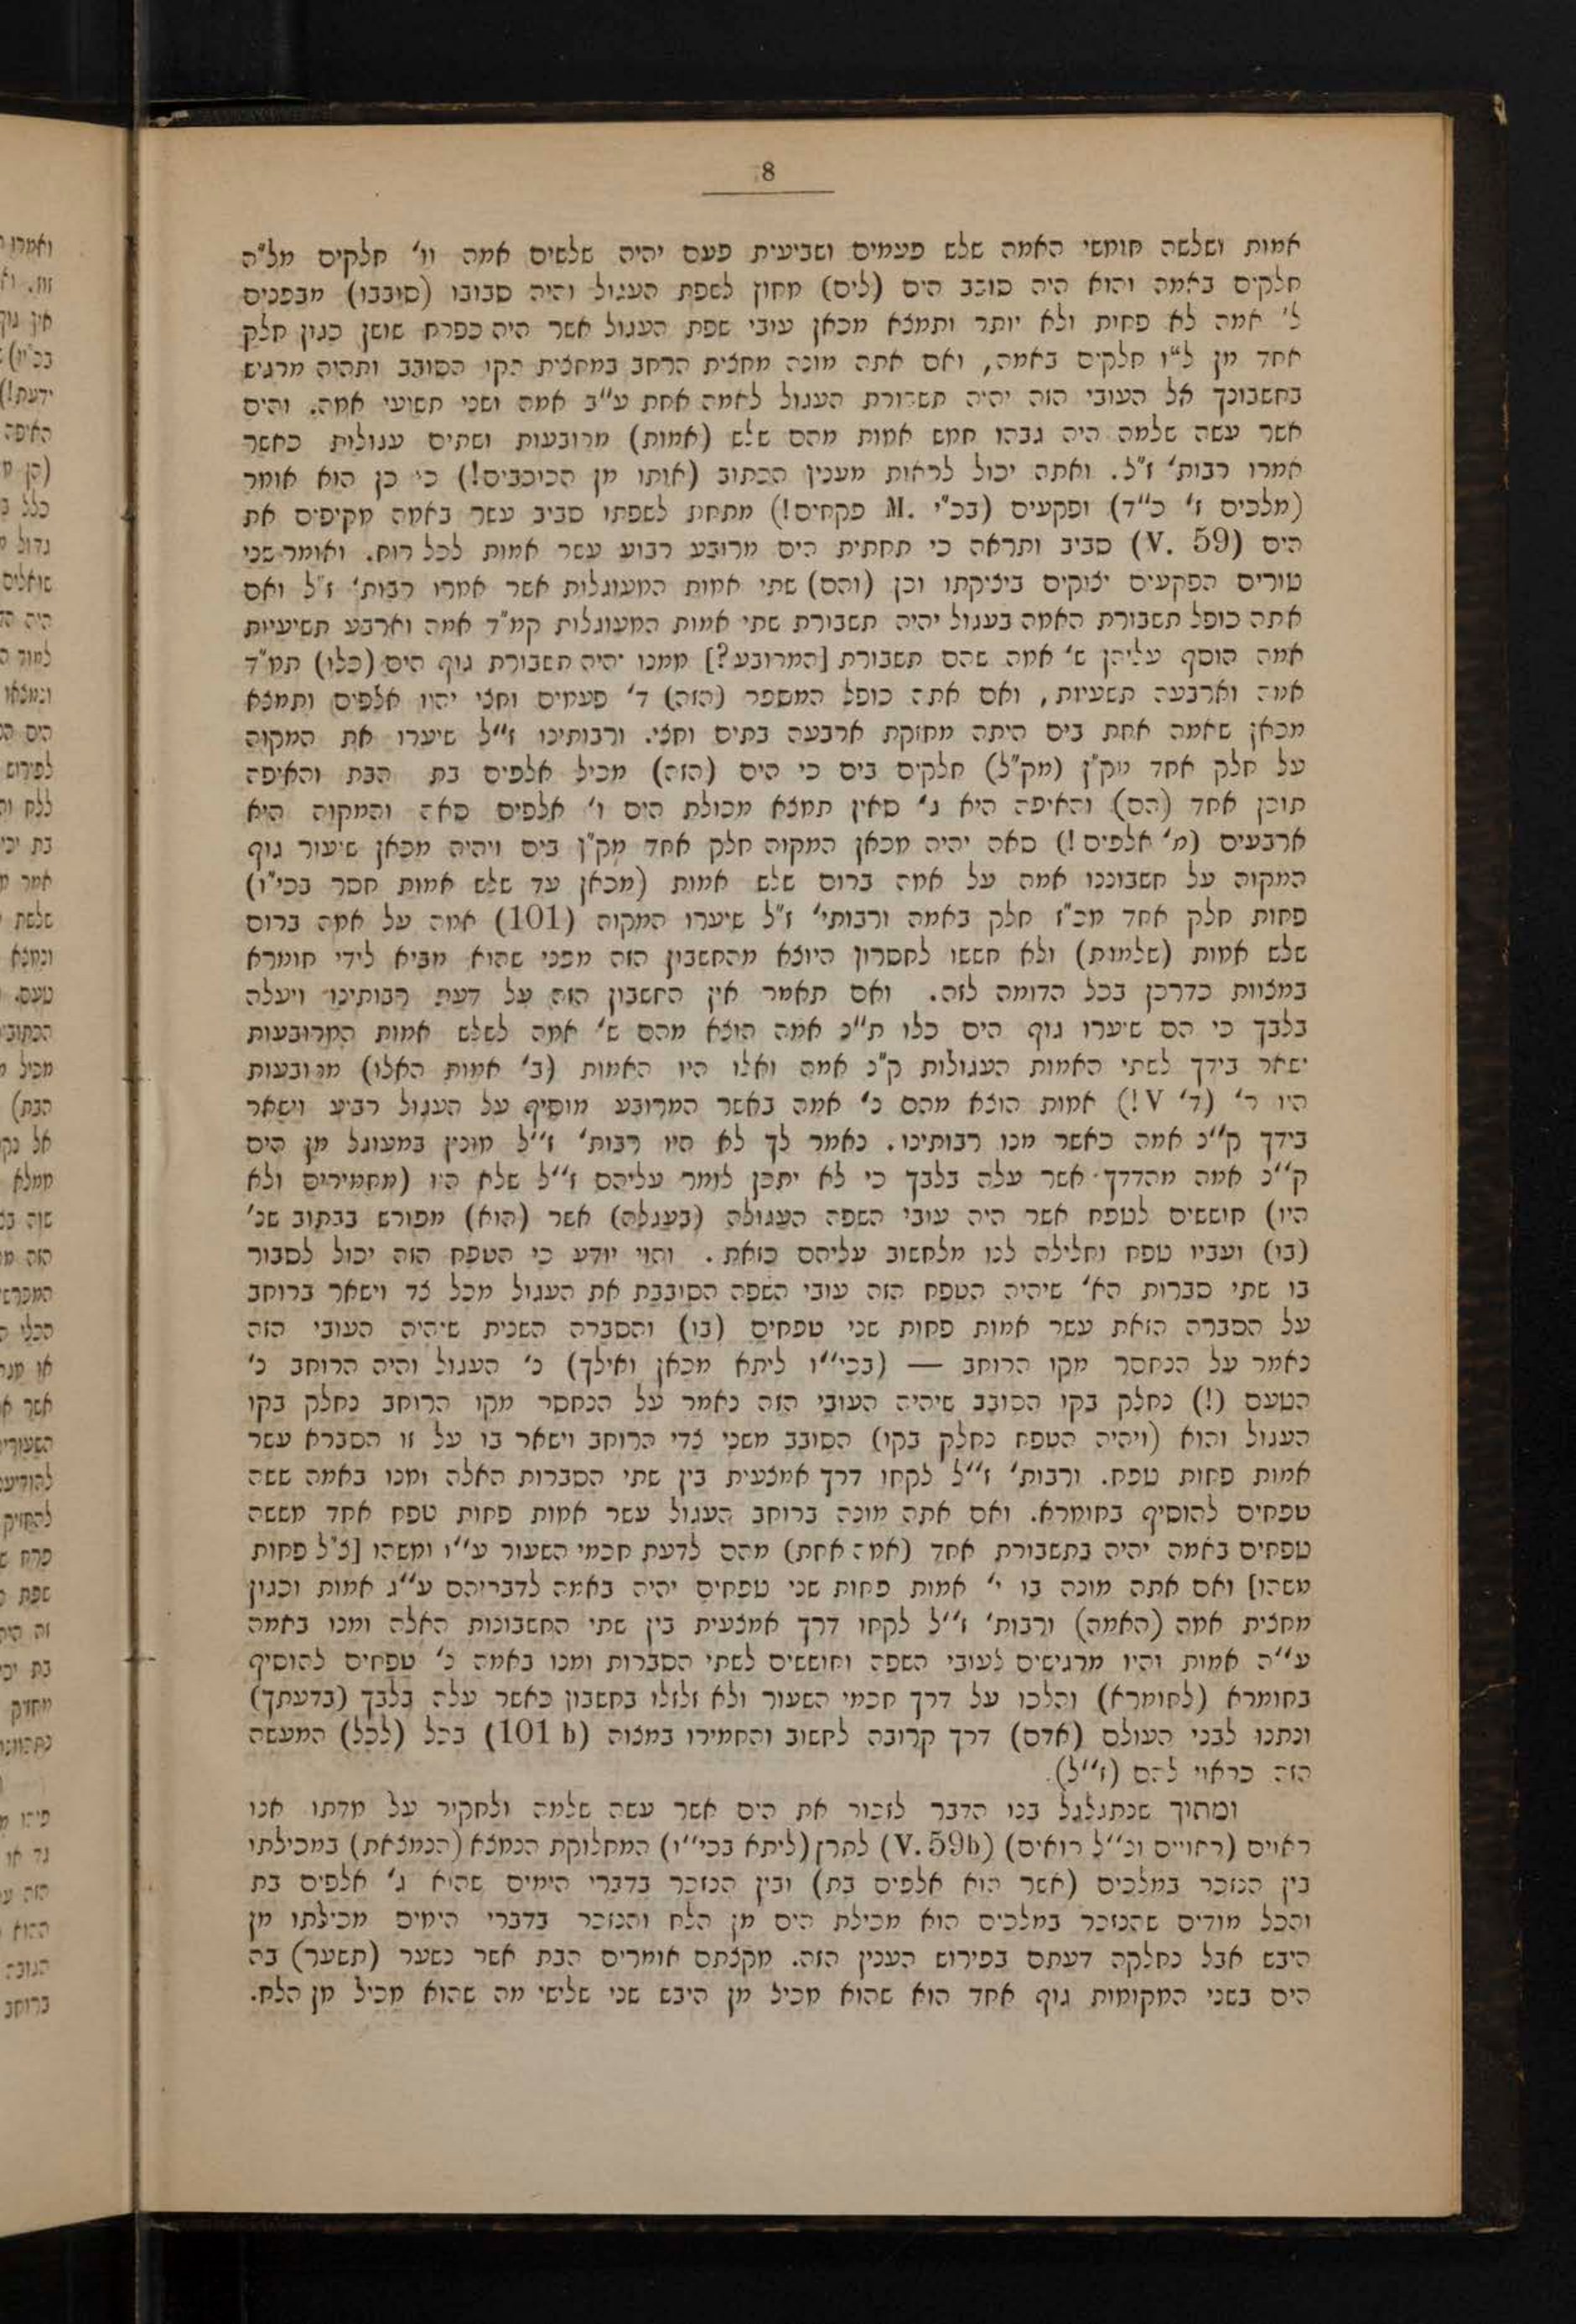 8
אמות ושלשה חומשי האמה שלש פעמים ושביעית פעם יהיה שלשים אמה וו' חלקים מל"ה
חלקים באמה והוא היה סובב הים (לים) מחוץ לשפת העגול והיה סבובו (סובבו) מבפנים
ל' אמה לא פחות ולא יותר ותמצא מכאן עובי שפת העגול אשר היה כפרח שושן כגון חלק
אחד מן ל"ו חלקים באמה, ואם אתה מונה מחצית הרחב במחצית הקו הסובב ותהיה מרגיש
בחשבונך אל העובי הזה יהיה תשבורת העגול לאמה אחת ע"ב אמה ושני תשיעי אמה. והים
אשר עשה שלמה היה גבהו חמש אמות מהם שלש (אמות) מרובעות ושתים עגולות כאשר
אמרו רבות' ז"ל. ואתה יכול לראות מענין הכתוב (אותו מן הכוכבים!) כי כן הוא אומר
(מלכים ז' כ"ד) ופקעים (בכ"י M. פקחים!) מתחת לשפתו סביב עשר באמה מקיפים את
הים (V. 59) סביב ותראה כי תחתית הים מרובע רבוע עשר אמות לכל רוח. ואומר שני
טורים הפקעים יצוקים ביציקתו וכן (והם) שתי אמות המעוגלות אשר אמרו רבות' ז"ל ואם
אתה כופל תשבורת האמה בעגול יהיה תשבורת שתי אמות המעוגלות קמ"ד אמה וארבע תשיעיות
אמה הוסף עליהן ש' אמה שהם תשבורת [המרובע?] ממנו יהיה תשבורת גוף הים (כלו) תמ"ד
אמה וארבעה תשעיות, ואם אתה כופל המספר (הזה) ד' פעמים וחצי יהיו אלפים ותמצא
מכאן שאמה אחת בים היתה מחזקת ארבעה בתים וחצי. ורבותינו ז"ל שיערו את המקוה
על חלק אחד מק"ן (מק"ל) חלקים בים כי הים (הזה) מכיל אלפים בת הבת והאיפה
תוכן אחד (הם) והאיפה היא ג' סאין תמצא מכולת הים ו' אלפים סאה והמקוה היא
ארבעים (מ' אלפים!) סאה יהיה מכאן המקוה חלק אחד מק"ן בים ויהיה מכאן שיעור גוף
המקוה על חשבוננו אמה על אמה ברום שלש אמות (מכאן עד שלש אמות חסר בכי"ו)
פחות חלק אחד מכ"ז חלק באמה ורבותי' ז"ל שיערו המקוה (101) אמה על אמה ברום
שלש אמות (שלמות) ולא חששו לחסרון היוצא מהחשבון הזה מפני שהוא מביא לידי חומרא
במצוות כדרכן בכל הדומה לזה. ואם תאמר אין החשבון הזה על דעת רבותינו ויעלה
בלבך כי הם שיערו גוף הים כלו ת"כ אמה הוצא מהם ש' אמה לשלש אמות המרובעות
ישאר בידך לשתי האמות העגולות ק"כ אמה ואלו היו האמות (ב' אמות האלו) מרובעות
היו ר' (ד' V!) אמות הוצא מהם כ' אמה באשר המרובע מוסיף על העגול רביע וישאר
בידך ק"כ אמה כאשר מנו רבותינו. נאמר לך לא היו רבות' ז"ל מונין במעוגל מן הים
ק"כ אמה מהדרך אשר עלה בלבך כי לא יתכן לומר עליהם ז"ל שלא היו (מחמירים ולא
היו) חוששים לטפח אשר היה עובי השפה העגולה (בעגלה) אשר (הוא) מפורש בכתוב שנ'
(בו) ועביו טפח וחלילה לנו מלחשוב עליהם כזאת. והוי יודע כי הטפח הזה יכול לסבור
בו שתי סברות הא' שיהיה הטפח הזה עובי השפה הסובבת את העגול מכל צד וישאר ברוחב
על הסברה הזאת עשר אמות פחות שני טפחים (בו) והסברה השנית שיהיה העובי הזה
נאמר על הנחסר מקו הרוחב — (בכי"ו ליתא מכאן ואילך) כ' העגול והיה הרוחב כ'
הטעם (!) נחלק בקו הסובב שיהיה העובי הזה נאמר על הנחסר מקו הרוחב נחלק בקו
העגול והוא (ויהיה הטפח נחלק בקו) הסובב משני צדי הרוחב וישאר בו על זו הסברא עשר
אמות פחות טפח. ורבות' ז"ל לקחו דרך אמצעית בין שתי הסברות האלה ומנו באמה ששה
טפחים להוסיף בחומרא. ואם אתה מונה ברוחב העגול עשר אמות פחות טפח אחד מששה
טפחים באמה יהיה בתשבורת אחד (אמה אחת) מהם לדעת חכמי השעור ע"ו ומשהו [צ"ל פחות
משהו] ואם אתה מונה בו י' אמות פחות שני טפחים יהיה באמה לדבריהם ע"ג אמות וכגון
מחצית אמה (האמה) ורבות' ז"ל לקחו דרך אמצעית בין שתי החשבונות האלה ומנו באמה
ע"ה אמות והיו מרגישים לעובי השפה וחוששים לשתי הסברות ומנו באמה כ' טפחים להוסיף
בחומרא (לחומרא) והלכו על דרך חכמי השעור ולא זלזלו בחשבון כאשר עלה בלבך (בדעתך)
ונתנו לבני העולם (אדם) דרך קרובה לחשוב והחמירו במצוה (101 b) בכל (לכל) המעשה
הזה כראוי להם (ז"ל).
ומתוך שנתגלגל בנו הדבר לזכור את הים אשר עשה שלמה ולחקיר על מדתו אנו
ראוים (ראויים ונ"ל רואים) (V. 59b) לתרץ (ליתא בכי"ו) המחלוקת הנמצא (הנמצאת) במכילתי
בין הנזכר במלכים (אשר הוא אלפים בת) ובין הנזכר בדברי הימים שהוא ג' אלפים בת
והכל מודים שהנזכר במלכים הוא מכילת הים מן הלח והנזכר בדברי הימים מכילתו מן
היבש אבל נחלקה דעתם בפירוש הענין הזה. מקצתם אומרים הבת אשר נשער (תשער) בה
הים בשני המקומות גוף אחד הוא שהוא מכיל מן היבש שני שלישי מה שהוא מכיל מן הלח.